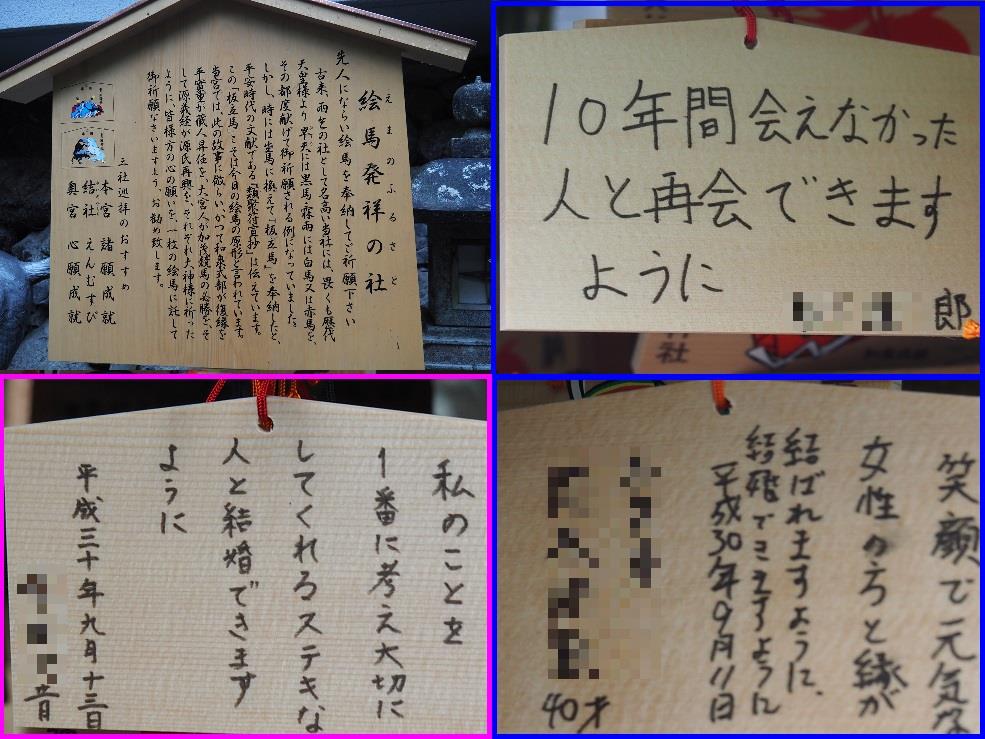 先人にならい絵馬を奉納してご祈願下さい
えまのふるさと
絵馬発祥の社
古来、雨乞の社として名高い当社には、畏くも歴代
天皇様より旱天には黒馬霖雨には白馬又は赤馬を、
その都度献げて御祈願される例になっていました。
しかし、時には生馬に換えて「板立馬」を奉納したと、
平安時代の文献である『類聚符宣抄』は伝えています。
この「板立馬」こそは今日の絵馬の原形と言われています。
当宮では此の故事に倣らい、かつて和泉式部が復縁を
平實重が蔵人昇任を、大宮人が加茂競馬の必勝を、そ
して源義経が源氏再興を、それぞれ大神様に祈った
ように、皆様方の心の願いを、一枚の絵馬に託して
御祈願なさいますよう、お勧め致します。
三社巡拝のおすすめ
本宮 諸願成就
結社 えんむすび
奥宮 心願成就
10年間会えなかった
人と再会できます
ように
郎
社
私のことを
1番に考え大切に
してくれるステキな
人と結婚できます
ように
平成三十年九月十三日
音
笑顔で元気な
女性の方と縁が
結ばれますように、
結婚できますように
平成30年9月11日
40才